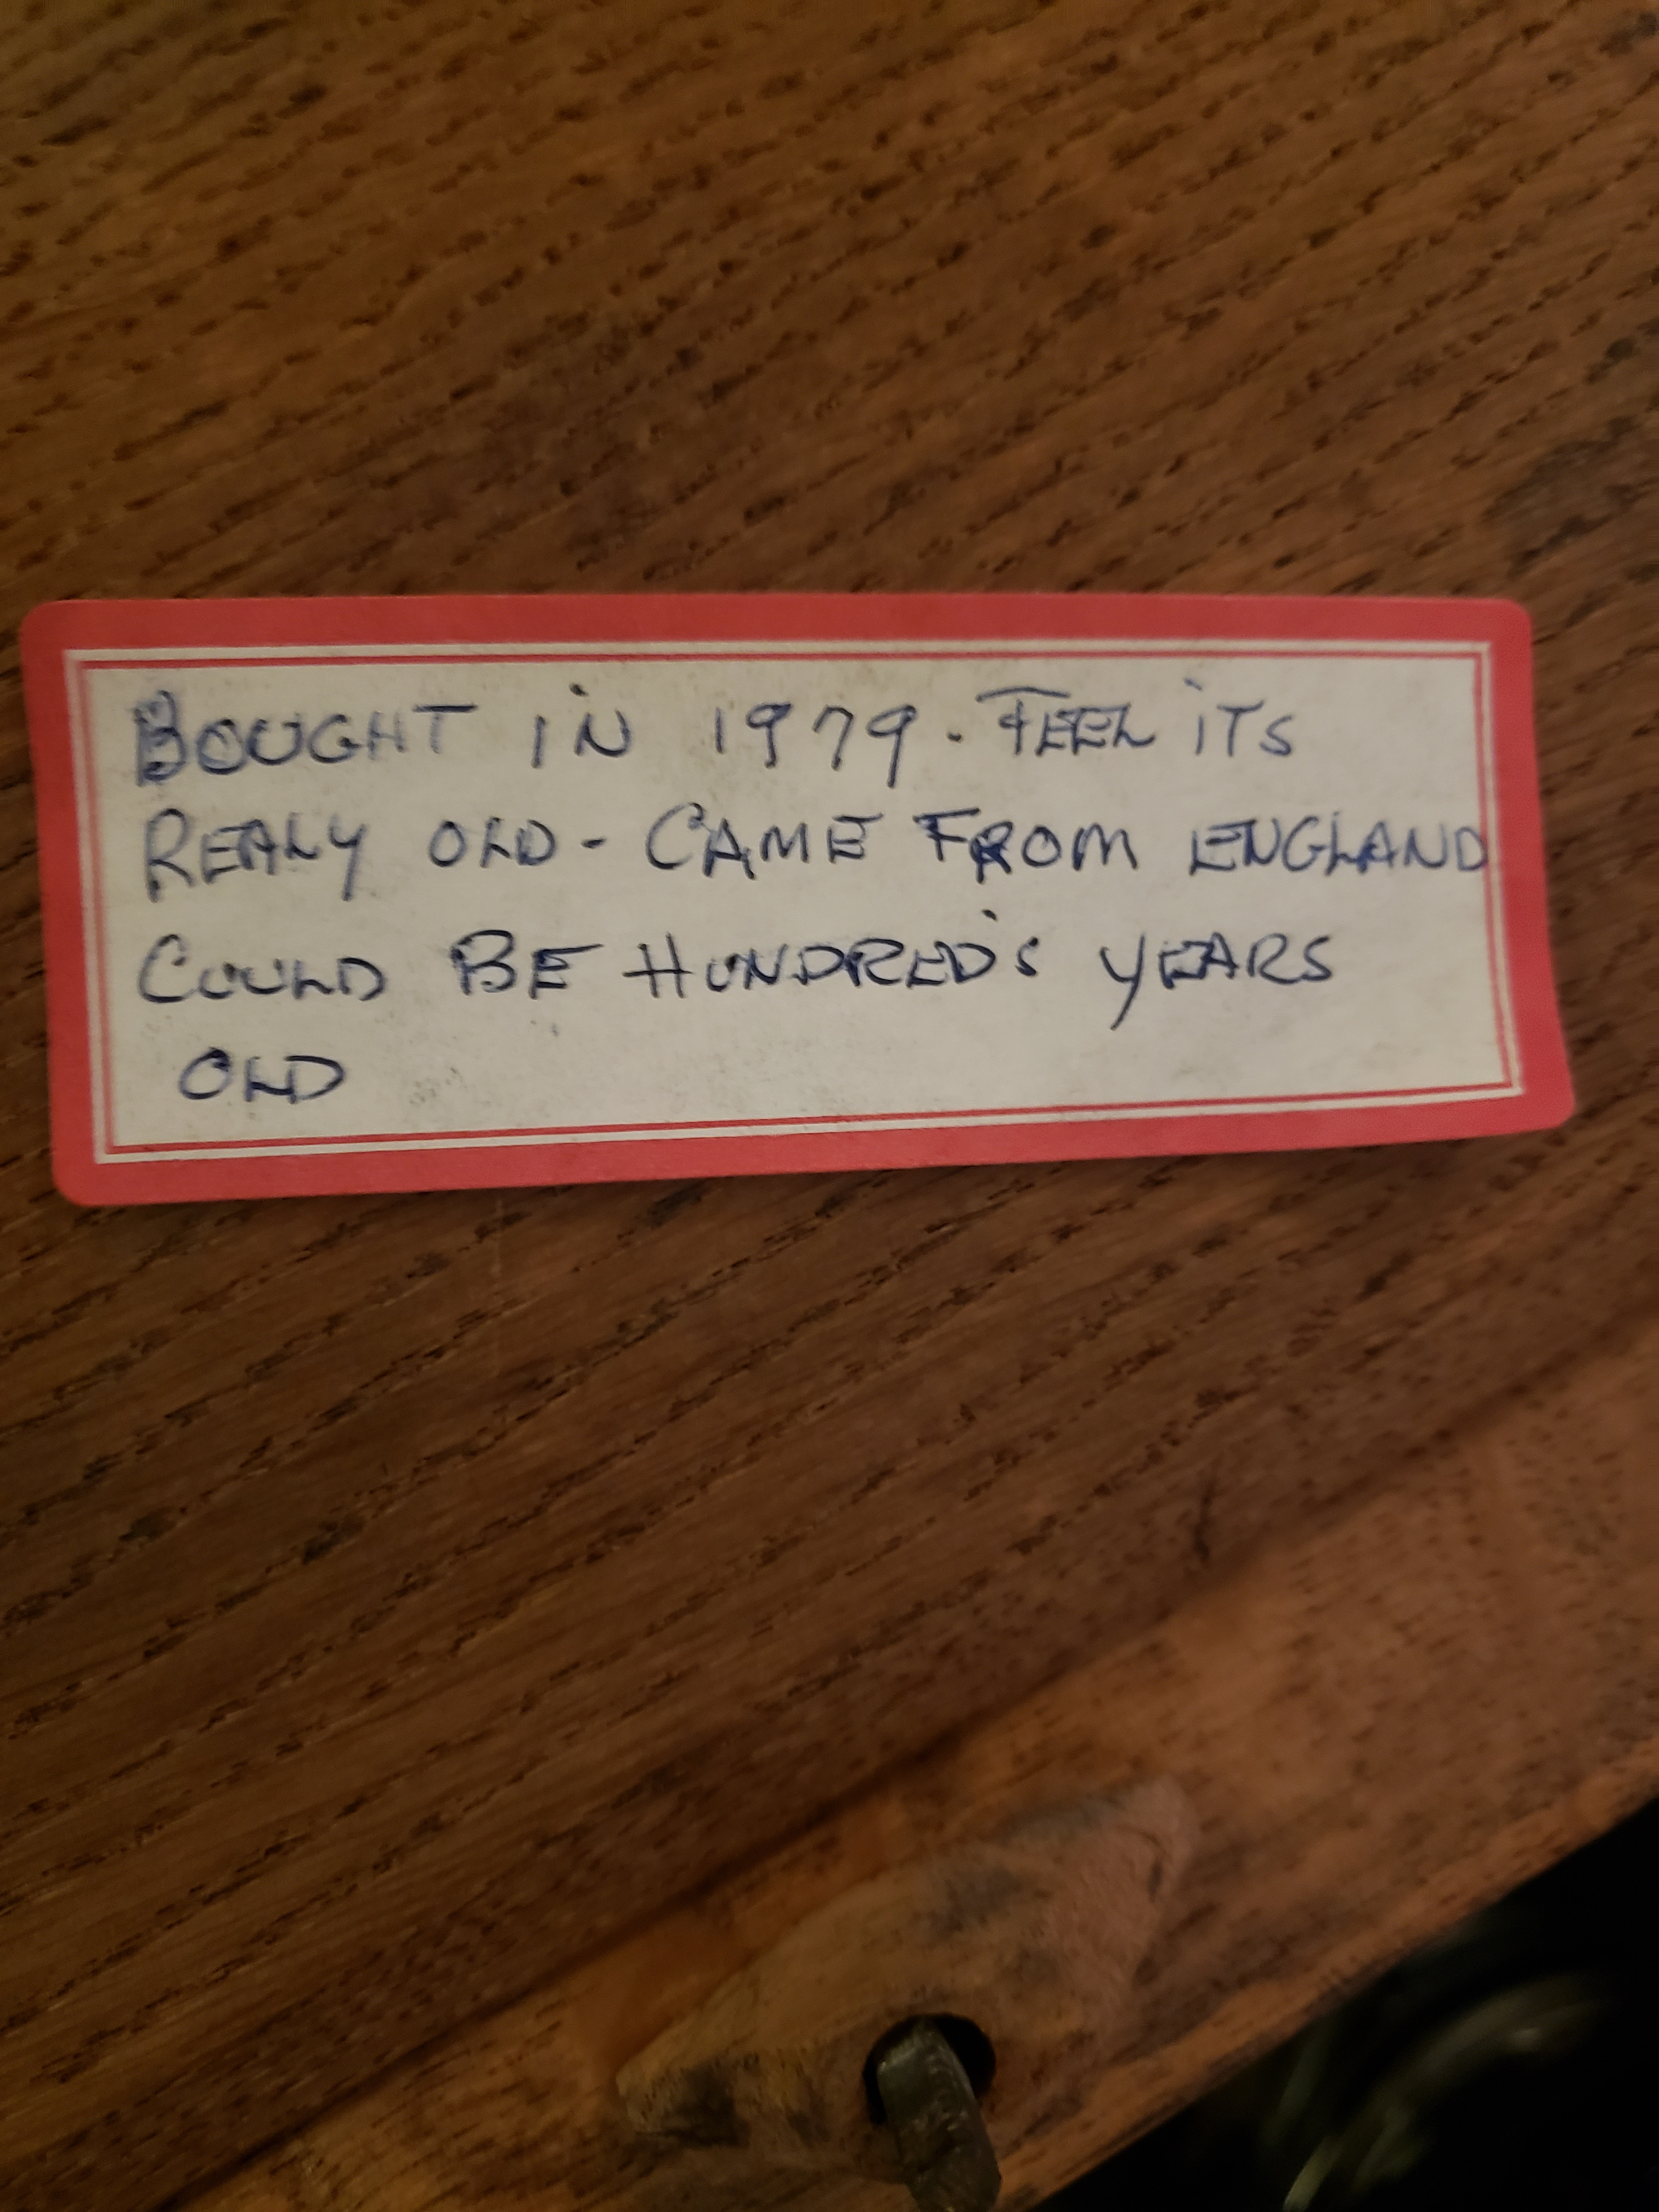 BOUGHT IN 1979. FEEL ITS
REALY OLD - CAME FROM ENGLAND
COULD BE HUNDRED'S YEARS
OLD